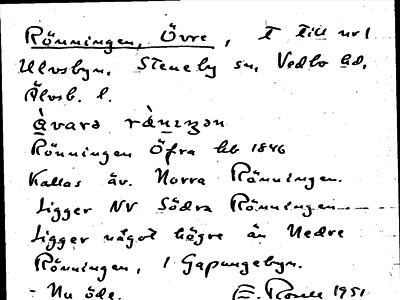 Rönningen, Övre, T Till nr 1
Ulvsbyn. Steneby sn, Vedbo hd,
Älvsb. l.
Rönningen Öfra hb 1846
Kallas äv. Norra Rönningen.
Ligger NV Södra Rönningen
Ligger något högre än Nedre
Rönningen, i Gapungebyn.
- Nu öde. 1951